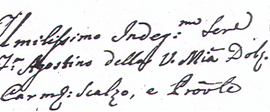 Umilissimo Indeg:mo Serv
Fr. Agostino della V. Mia Dol:
Carm: Scalzo, e Prõvle